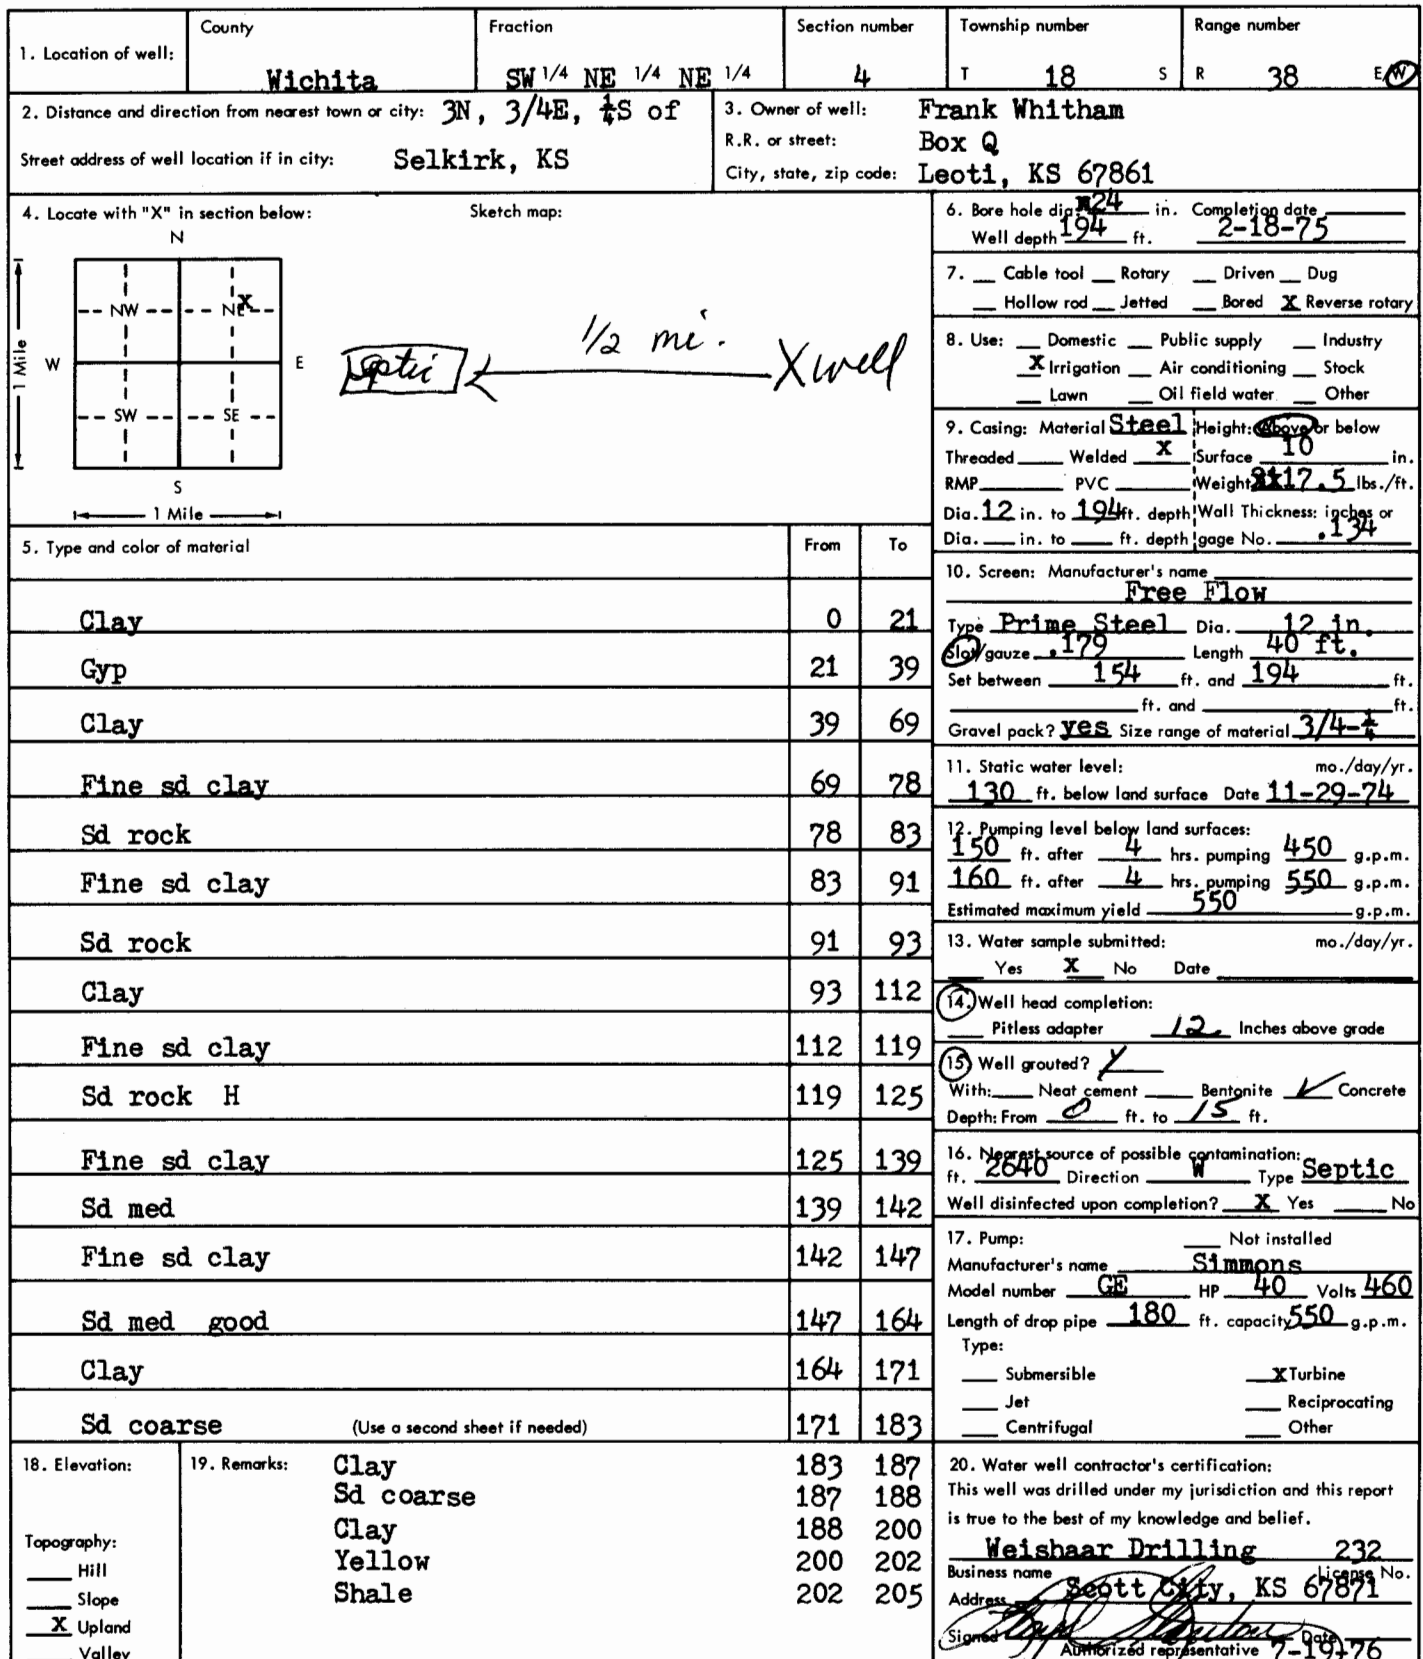 1. Location of well: County Wichita Fraction SW 1/4 NE 1/4 NE 1/4 Section number 4 Township number T 18 S Range number R 38 E/W
2. Distance and direction from nearest town or city: 3N, 3/4E, ¼S of
Street address of well location if in city: Selkirk, KS
3. Owner of well: Frank Whitham
R.R. or street: Box Q
City, state, zip code: Leoti, KS 67861
4. Locate with "X" in section below: Sketch map:
N
NW NE X
W E
SW SE
S
1 Mile
1 Mile
Septic 1/2 mi. X well
5. Type and color of material From To
Clay 0 21
Gyp 21 39
Clay 39 69
Fine sd clay 69 78
Sd rock 78 83
Fine sd clay 83 91
Sd rock 91 93
Clay 93 112
Fine sd clay 112 119
Sd rock H 119 125
Fine sd clay 125 139
Sd med 139 142
Fine sd clay 142 147
Sd med good 147 164
Clay 164 171
Sd coarse (Use a second sheet if needed) 171 183
6. Bore hole dia. 24 in. Completion date
Well depth 194 ft. 2-18-75
7. Cable tool Rotary Driven Dug
Hollow rod Jetted Bored X Reverse rotary
8. Use: Domestic Public supply Industry
X Irrigation Air conditioning Stock
Lawn Oil field water Other
9. Casing: Material Steel Height: Above or below
Threaded Welded X Surface 10 in.
RMP PVC Weight 17.5 lbs./ft.
Dia. 12 in. to 194 ft. depth Wall Thickness: inches or
Dia. in. to ft. depth gage No. .134
10. Screen: Manufacturer's name
Free Flow
Type Prime Steel Dia. 12 in.
Slot/gauze .179 Length 40 ft.
Set between 154 ft. and 194 ft.
ft. and ft.
Gravel pack? yes Size range of material 3/4-¼
11. Static water level: mo./day/yr.
130 ft. below land surface Date 11-29-74
12. Pumping level below land surfaces:
150 ft. after 4 hrs. pumping 450 g.p.m.
160 ft. after 4 hrs. pumping 550 g.p.m.
Estimated maximum yield 550 g.p.m.
13. Water sample submitted: mo./day/yr.
Yes X No Date
14. Well head completion:
Pitless adapter 12 Inches above grade
15. Well grouted? Y
With: Neat cement Bentonite ✓ Concrete
Depth: From 0 ft. to 15 ft.
16. Nearest source of possible contamination:
ft. 2640 Direction W Type Septic
Well disinfected upon completion? X Yes No
17. Pump: Not installed
Manufacturer's name Simmons
Model number GE HP 40 Volts 460
Length of drop pipe 180 ft. capacity 550 g.p.m.
Type:
Submersible X Turbine
Jet Reciprocating
Centrifugal Other
18. Elevation:
Topography:
Hill
Slope
X Upland
Valley
19. Remarks: Clay 183 187
Sd coarse 187 188
Clay 188 200
Yellow 200 202
Shale 202 205
20. Water well contractor's certification:
This well was drilled under my jurisdiction and this report
is true to the best of my knowledge and belief.
Weishaar Drilling 232
Business name License No.
Address Scott City, KS 67871
Signed Date
Authorized representative 7-19-76